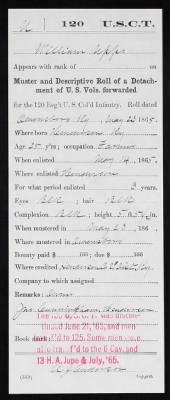 U | 120 | U.S.C.T.
William Epps
Appears with rank of
Muster and Descriptive Roll of a Detach-
ment of U. S. Vols. forwarded
for the 120 Reg't U. S. Col'd Infantry. Roll dated
Owensboro Ky, May 23 1865.
Where born Henderson Ky
Age 25 y'rs; occupation Farmer
When enlisted May 14, 1865.
Where enlisted Henderson
For what period enlisted 3 years.
Eyes Blk; hair Blk
Complexion Blk; height 5 ft. in.
When mustered in May 23, 186
Where mustered in Owensboro
Bounty paid $ 100; due $ 100
Where credited Henderson Ky
Company to which assigned
Remarks:
Jas. Henderson
tinued June 21, '65, and men
f'd to 125. Some men
Book mark:
f'd to the 6 Cav. and
13 H. A. June & July, '65.